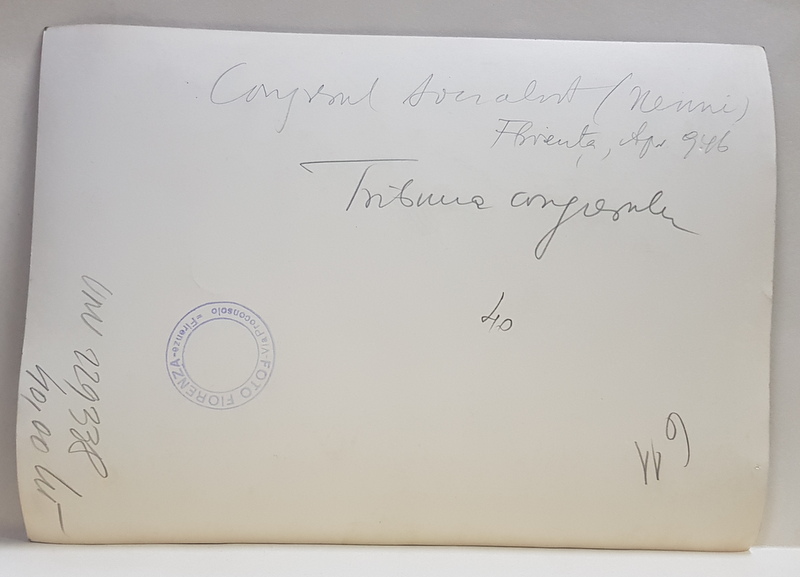 Congresul Socialist (Nenni)
Florența, Apr 946
Tribuna congresului
40
FOTO FIORENZA - Firenze = Via Proconsolo
229338
40,00 lei